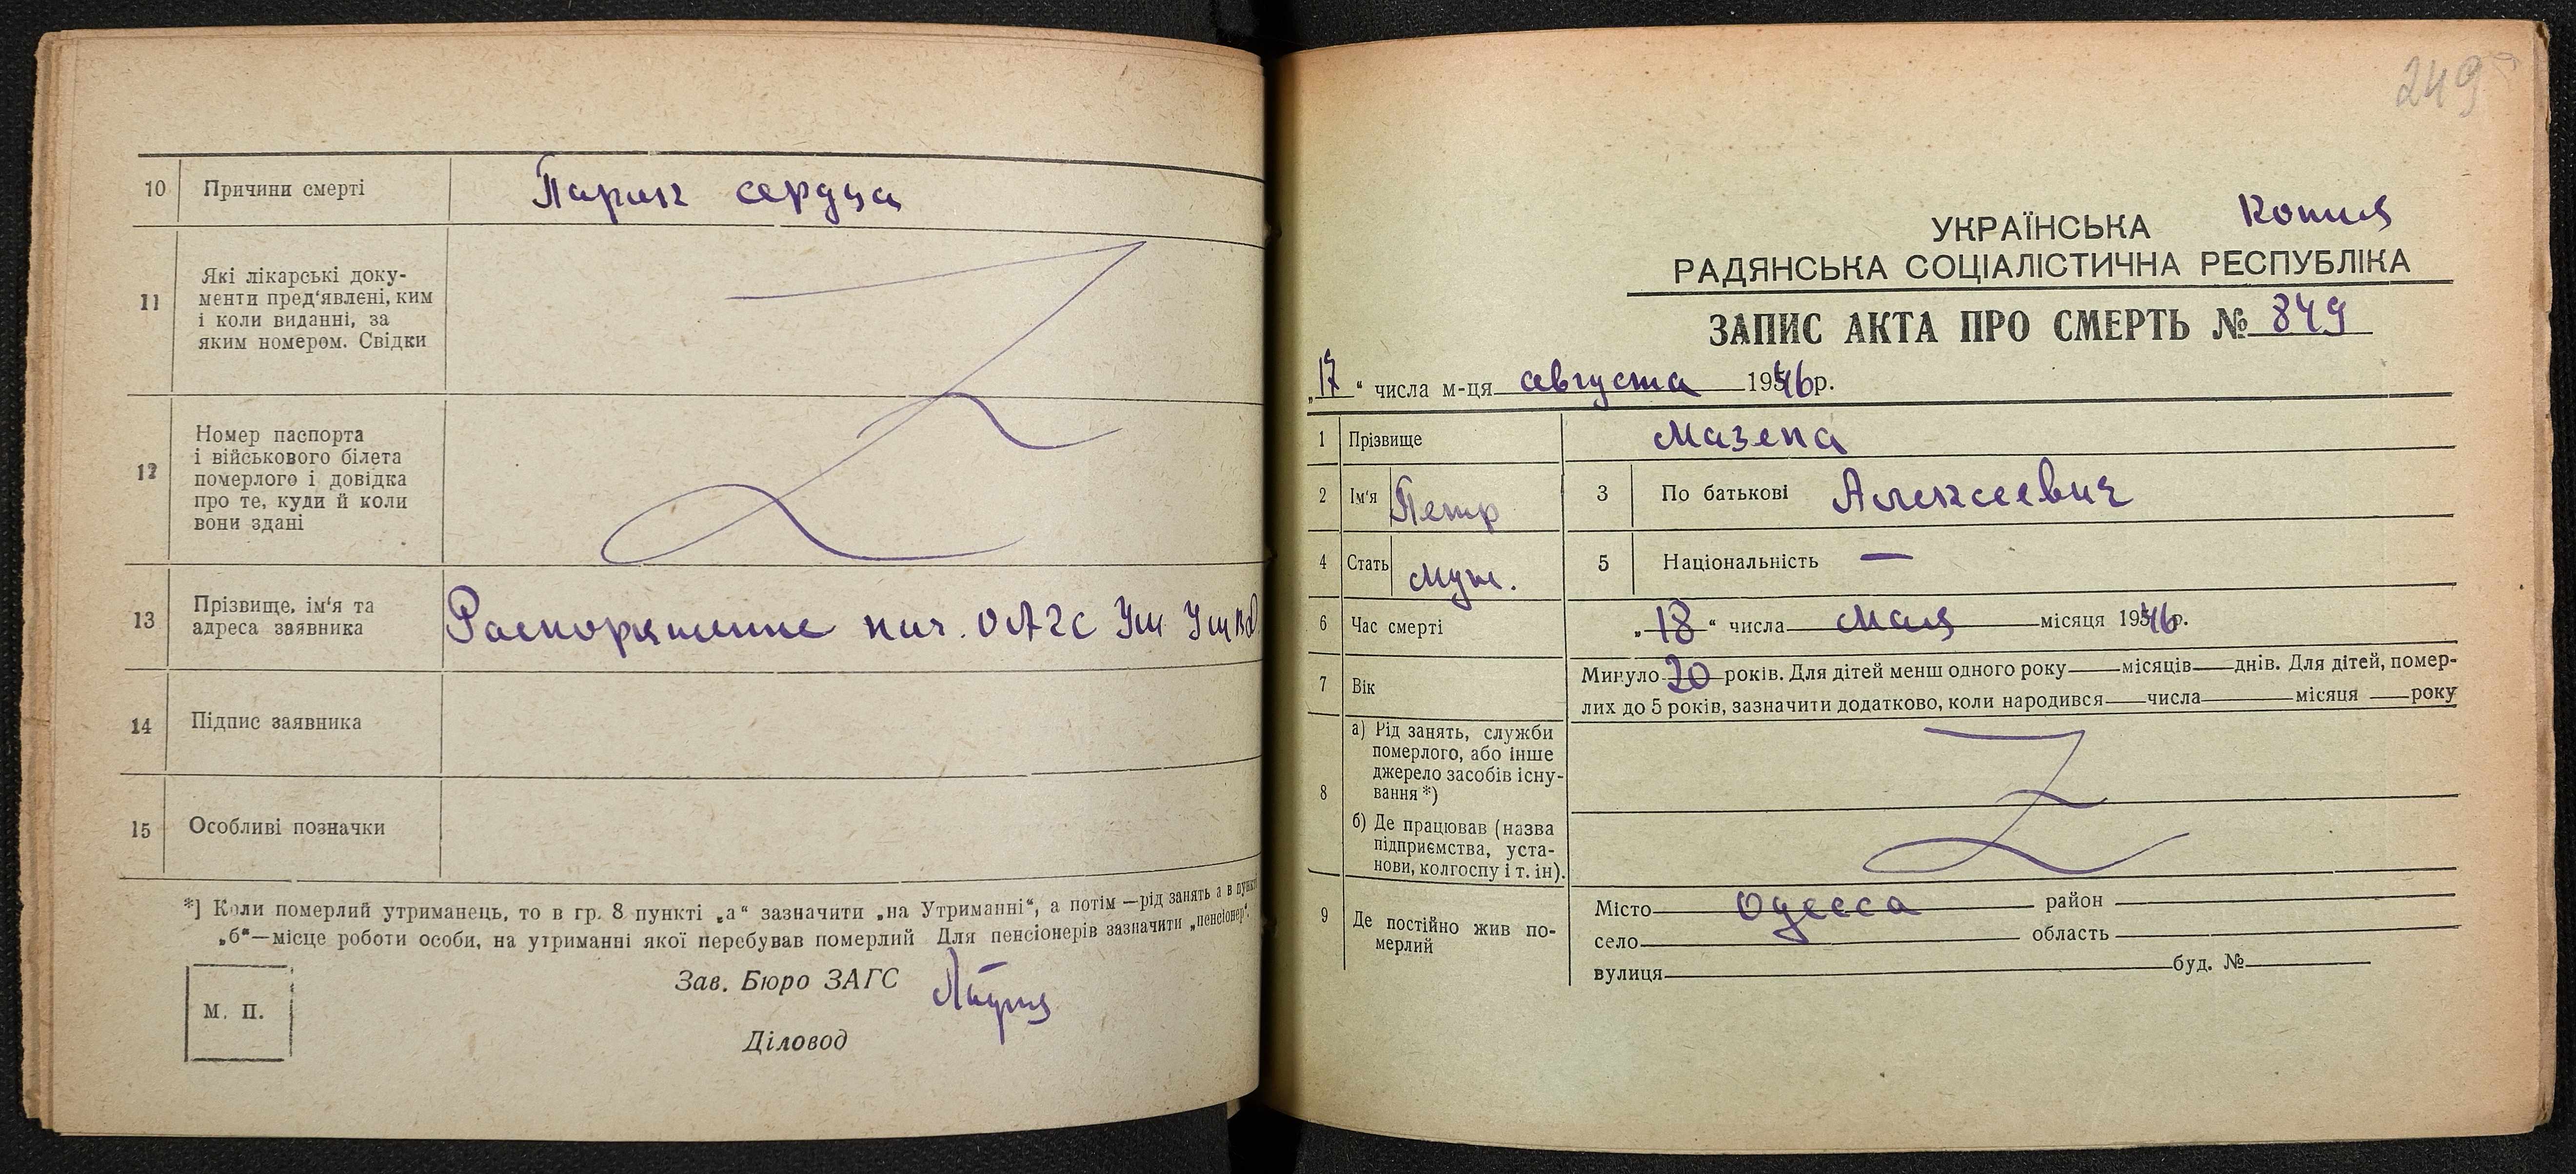 10 Причини смерті Парал сердца
11 Які лікарські доку-
менти пред'явлені, ким
і коли виданні, за
яким номером. Свідки
12 Номер паспорта
і військового білета
померлого і довідка
про те, куди й коли
вони здані
13 Прізвище, ім'я та
адреса заявника Распоряжение нач. ОАГС
14 Підпис заявника
15 Особливі позначки
*] Коли померлий утриманець, то в гр. 8 пункті „а“ зазначити „на Утриманні“, а потім—рід занять а в пункті
„б“—місце роботи особи, на утриманні якої перебував померлий Для пенсіонерів зазначити „пенсіонер“.
М. П.
Зав. Бюро ЗАГС
Діловод
249
Копия
УКРАЇНСЬКА
РАДЯНСЬКА СОЦІАЛІСТИЧНА РЕСПУБЛІКА
ЗАПИС АКТА ПРО СМЕРТЬ № 849
„17“ числа м-ця августа 1946р.
1 Прізвище Мазепа
2 Ім'я Петр 3 По батькові Алексеевич
4 Стать муж. 5 Національність —
6 Час смерті „18“ числа мая місяця 1946р.
7 Вік Минуло 20 років. Для дітей менш одного року місяців днів. Для дітей, помер-
лих до 5 років, зазначити додатково, коли народився числа місяця року
8 а) Рід занять, служби
померлого, або інше
джерело засобів існу-
вання *)
б) Де працював (назва
підприємства, уста-
нови, колгоспу і т. ін).
9 Де постійно жив по-
мерлий
Місто Одесса район
село область
вулиця буд. №